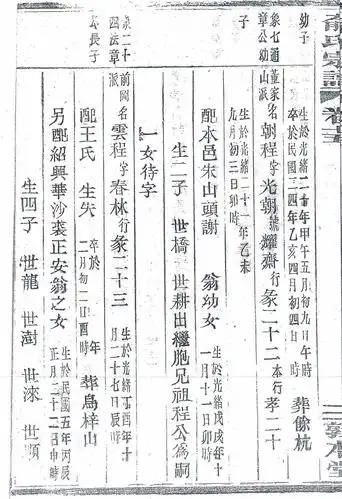 俞氏宗譜 卷
敦本堂
幼子
生於光緒二十年甲午五月初九日午時
卒於民國二四年乙亥四月初四日時 葬餘杭
象七通
章公幼
子
董家名
山派
朝程字光朝號耀齋行象二十二本行孝二十
生於光緒二十一年乙未
九月初三日卯時
配本邑朱山頭謝 翁幼女
生於光緒戊戌年十
一月十一日卯時
生二子 世橋 世耕出繼胞兄祖程公為嗣
一女待字
象二十
四法章
公長子
前岡名
派
雲程字春林行象二十三
生於光緒丁酉年十
月二十七日辰時
配王氏 生失
卒於 年
二月初一日酉時
葬烏梓山
另配紹興華沙裘正安翁之女
生於民國五年丙辰
正月二十二日申時
生四子 世龍 世澍 世淶 世順